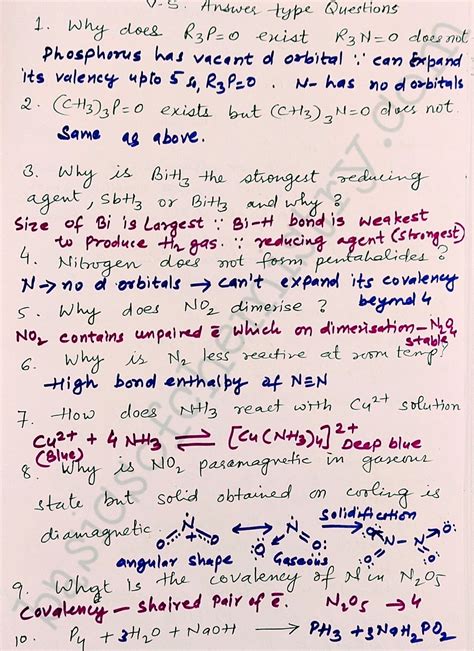 V.S. Answer type Questions
1. Why does R3P=O exist R3N=O does not
Phosphorus has vacant d orbital ∵ can Expand
its valency upto 5 &, R3P=O . N- has no d orbitals
2. (CH3)3P=O exists but (CH3)3N=O does not.
Same as above.
3. Why is BiH3 the strongest reducing
agent, SbH3 or BiH3 and why ?
Size of Bi is Largest ∵ Bi-H bond is weakest
to Produce H2 gas. ∵ reducing agent (strongest)
4. Nitrogen does not form pentahalides ?
N→no d orbitals → can't expand its covalency
beyond 4
5. Why does NO2 dimerise ?
NO2 contains unpaired e̅ which on dimerisation - N2O4
stable
6. Why is N2 less reactive at room temp?
High bond enthalpy of N≡N
7. How does NH3 react with Cu2+ solution
Cu2+ + 4 NH3 ⇌ [Cu(NH3)4]2+ Deep blue
(Blue)
8. Why is NO2 paramagnetic in gaseous
state but solid obtained on cooling is
diamagnetic.
Solidification
N O O ↔ N O O → O O N - N O O
angular shape Gaseous
9. What is the covalency of N in N2O5
Covalency - shaired Pair of e̅. N2O5 → 4
10. P4 + 3H2O + NaOH → PH3 + 3NaH2PO2